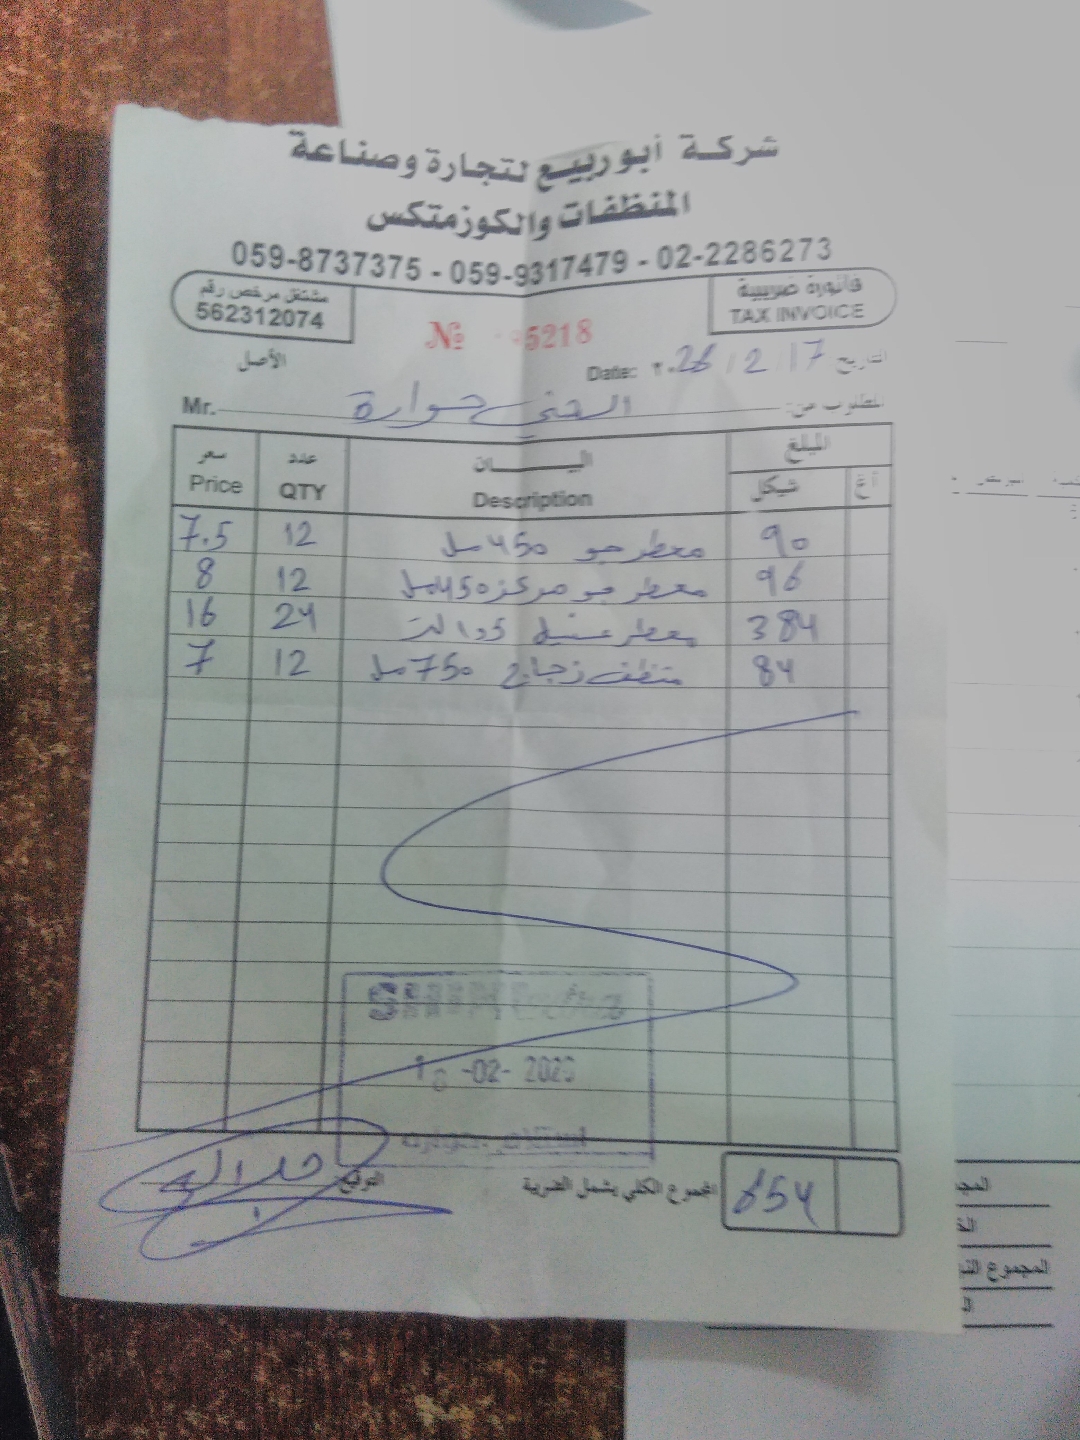 شركة أبو ربيع لتجارة وصناعة
المنظفات والكوزمتكس
059-8737375 - 059-9317479 - 02-2286273
مشتغل مرخص رقم
562312074
فاتورة ضريبية
TAX INVOICE
№ 5218
الأصل
Date: 2 / 17 التاريخ
Mr. حوارة المطلوب من:
سعر عدد البيــــــان المبلغ
Price QTY Description شيكل أغ
7.5 12 معطر جو 450 مل 90
8 12 معطر جو مركز 450 مل 96
16 24 معطر غسيل 384
7 12 منظف زجاج 750 مل 84
-02-
التوقيع
المجموع الكلي يشمل الضريبة 654